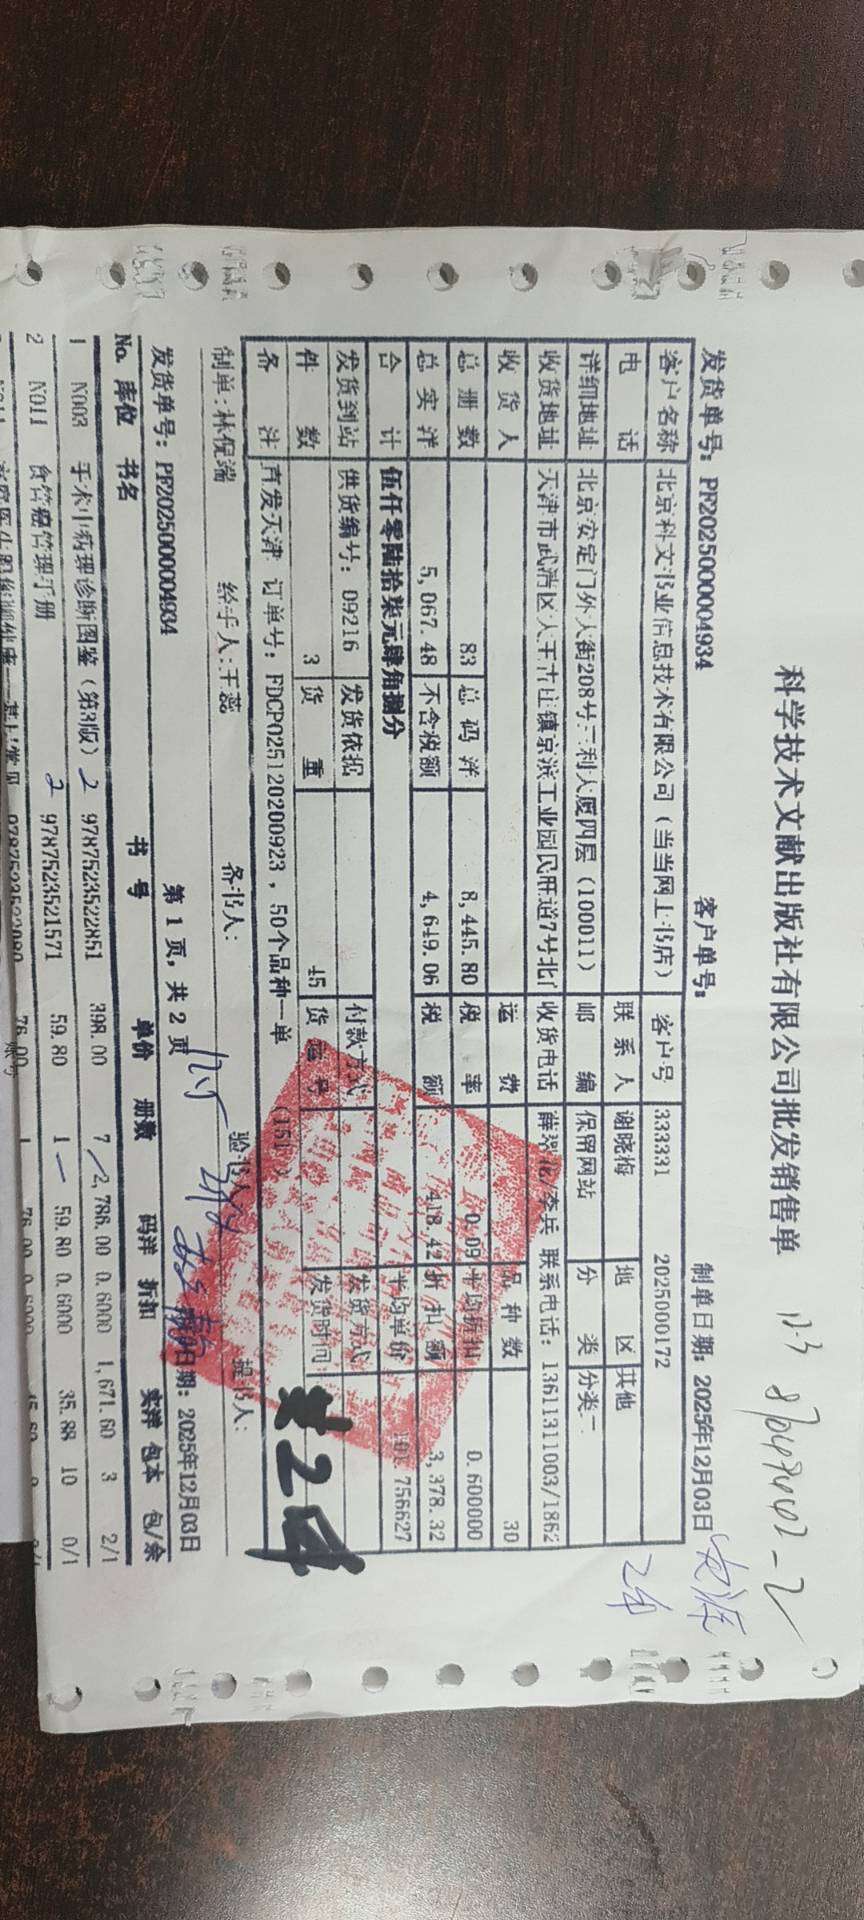 科学技术文献出版社有限公司批发销售单
发货单号: PF2025000004934 客户单号: 制单日期: 2025年12月03日
客户名称 北京科文书业信息技术有限公司(当当网上书店) 客户号 333331 2025000172
电话 联系人 谢晓梅 地区 其他
详细地址 北京安定门外大街208号三利大厦四层(100011) 邮编 保留网站 分类 分类一
收货地址 天津市武清区大王古庄镇京滨工业园民旺道7号北厂 收货电话 李兵 联系电话: 13611311003/1862
收货人 运费 品种数 30
总册数 83 总码洋 8,445.80 税率 0.09 平均折扣 0.600000
总实洋 5,067.48 不含税额 4,649.06 税额 418.42 折扣额 3,378.32
合计 伍仟零陆拾柒元肆角捌分 平均单价 101.756627
发货到站 供货编号: 09216 发货依据 付款方式 发货方式
件数 3 货重 45 货运号 发货时间
备注 直发天津 订单号: FDCP025120200923, 50个品种一单 (151)
共2单
制单: 林倪端 经手人: 王蕊 备书人: 验书人: 提书人:
发货单号: PF2025000004934 第 1 页, 共 2 页 日期: 2025年12月03日
No. 库位 书名 书号 单价 册数 码洋 折扣 实洋 包本 包/余
1 N003 手术中病理诊断图鉴(第3版) 2 9787523522851 398.00 7 2,786.00 0.6000 1,671.60 3 2/1
2 N011 食管癌管理手册 2 9787523521571 59.80 1 59.80 0.6000 35.88 10 0/1